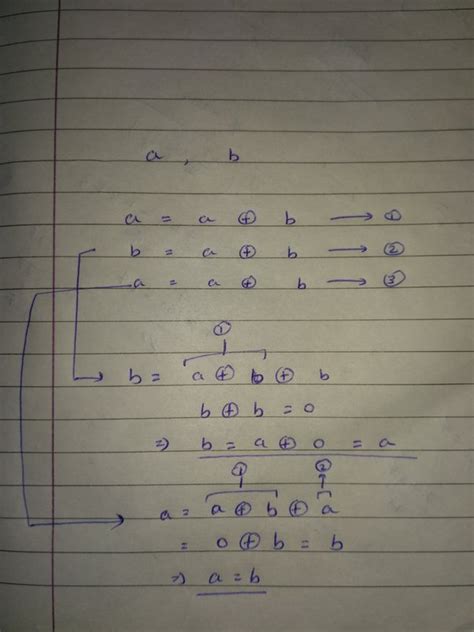 a , b
a = a ⊕ b → ①
b = a ⊕ b → ②
a = a ⊕ b → ③
①
b = a ⊕ b ⊕ b
b ⊕ b = 0
⇒ b = a ⊕ 0 = a
① ②
a = a ⊕ b ⊕ a
= 0 ⊕ b = b
⇒ a = b